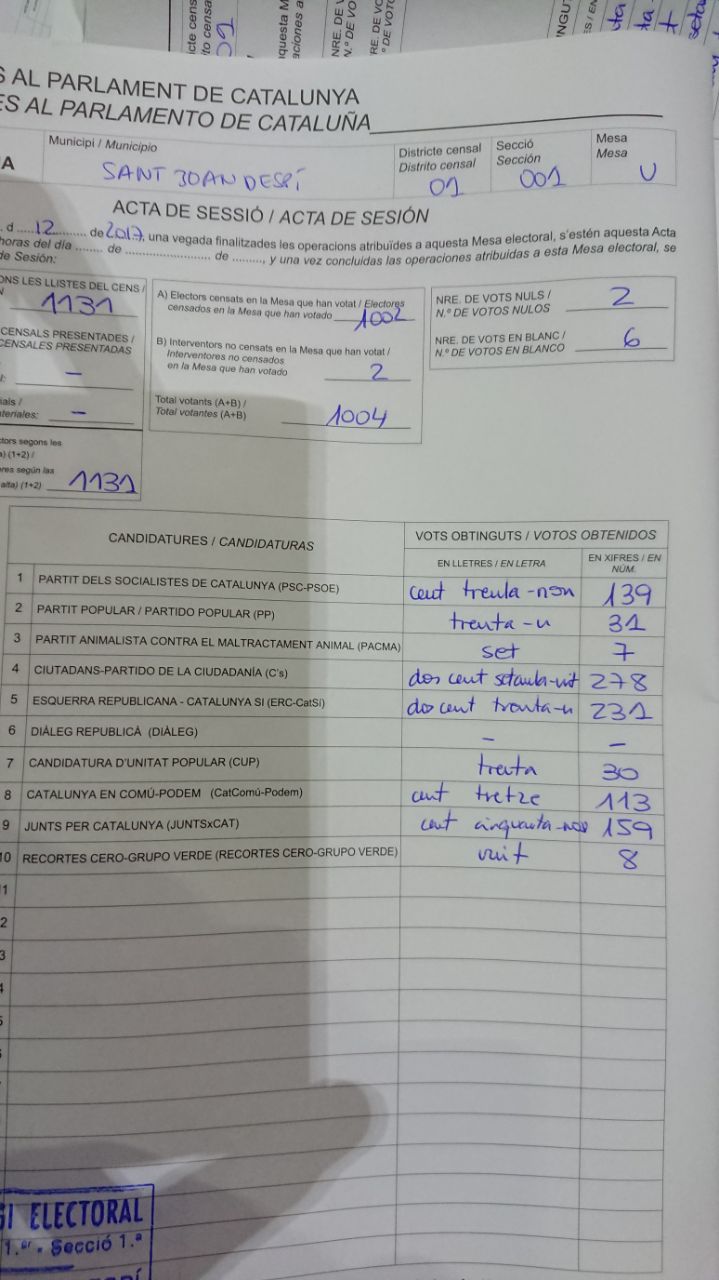 S AL PARLAMENT DE CATALUNYA
ES AL PARLAMENTO DE CATALUÑA
Municipi / Municipio
SANT JOAN DESPÍ
Districte censal
Distrito censal
01
Secció
Sección
001
Mesa
Mesa
U
ACTA DE SESSIÓ / ACTA DE SESIÓN
d 12 de 2017, una vegada finalitzades les operacions atribuïdes a aquesta Mesa electoral, s'estén aquesta Acta
horas del día ........ de ........................ de .........., y una vez concluidas las operaciones atribuidas a esta Mesa electoral, se
de Sesión:
ONS LES LLISTES DEL CENS /
1131
CENSALS PRESENTADES /
CENSALES PRESENTADAS
–
iais /
teriales: –
ctors segons les
a) (1+2) /
ores según las
alta) (1+2) 1131
A) Electors censats en la Mesa que han votat / Electores
censados en la Mesa que han votado 1002
B) Interventors no censats en la Mesa que han votat /
Interventores no censados
en la Mesa que han votado 2
Total votants (A+B) /
Total votantes (A+B) 1004
NRE. DE VOTS NULS /
N.º DE VOTOS NULOS 2
NRE. DE VOTS EN BLANC /
N.º DE VOTOS EN BLANCO 6
CANDIDATURES / CANDIDATURAS
VOTS OBTINGUTS / VOTOS OBTENIDOS
EN LLETRES / EN LETRA
EN XIFRES / EN NÚM.
1 PARTIT DELS SOCIALISTES DE CATALUNYA (PSC-PSOE) cent trenta-nou 139
2 PARTIT POPULAR / PARTIDO POPULAR (PP) trenta-u 31
3 PARTIT ANIMALISTA CONTRA EL MALTRACTAMENT ANIMAL (PACMA) set 7
4 CIUTADANS-PARTIDO DE LA CIUDADANÍA (C's) dos cent setanta-vit 278
5 ESQUERRA REPUBLICANA - CATALUNYA SI (ERC-CatSí) dos cent trenta-u 231
6 DIÀLEG REPUBLICÀ (DIÀLEG) – –
7 CANDIDATURA D'UNITAT POPULAR (CUP) trenta 30
8 CATALUNYA EN COMÚ-PODEM (CatComú-Podem) cent tretze 113
9 JUNTS PER CATALUNYA (JUNTSxCAT) cent cinquanta-nou 159
10 RECORTES CERO-GRUPO VERDE (RECORTES CERO-GRUPO VERDE) vuit 8
1
2
3
4
5
SI ELECTORAL
1.er - Secció 1.ª